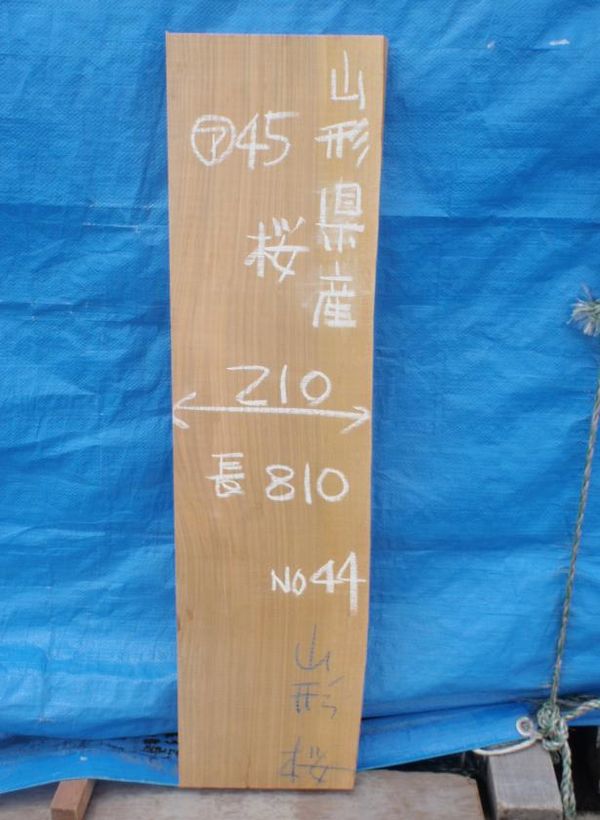 山形県産
㋐45
桜
210
長810
NO44
山形